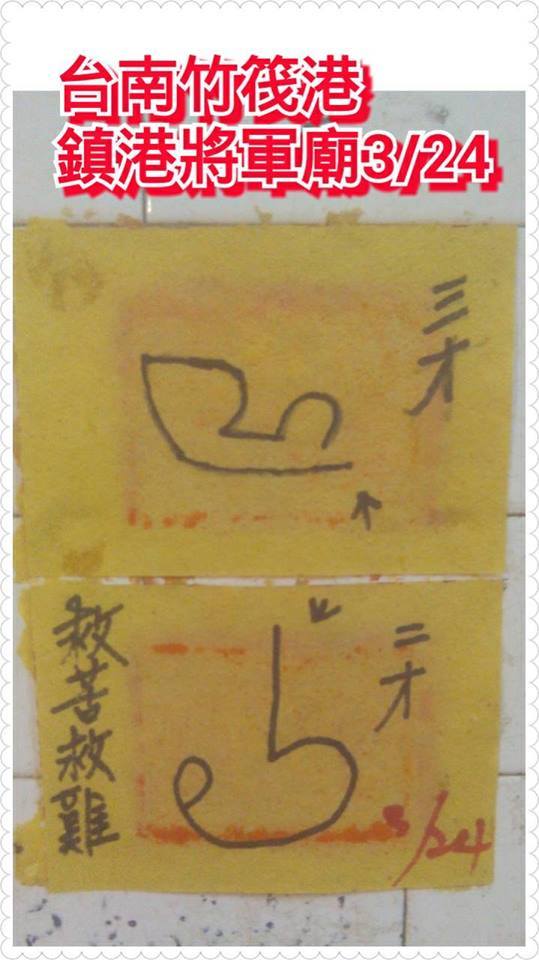 台南竹筏港
鎮港將軍廟3/24
三才
二才
救苦救難
3/24